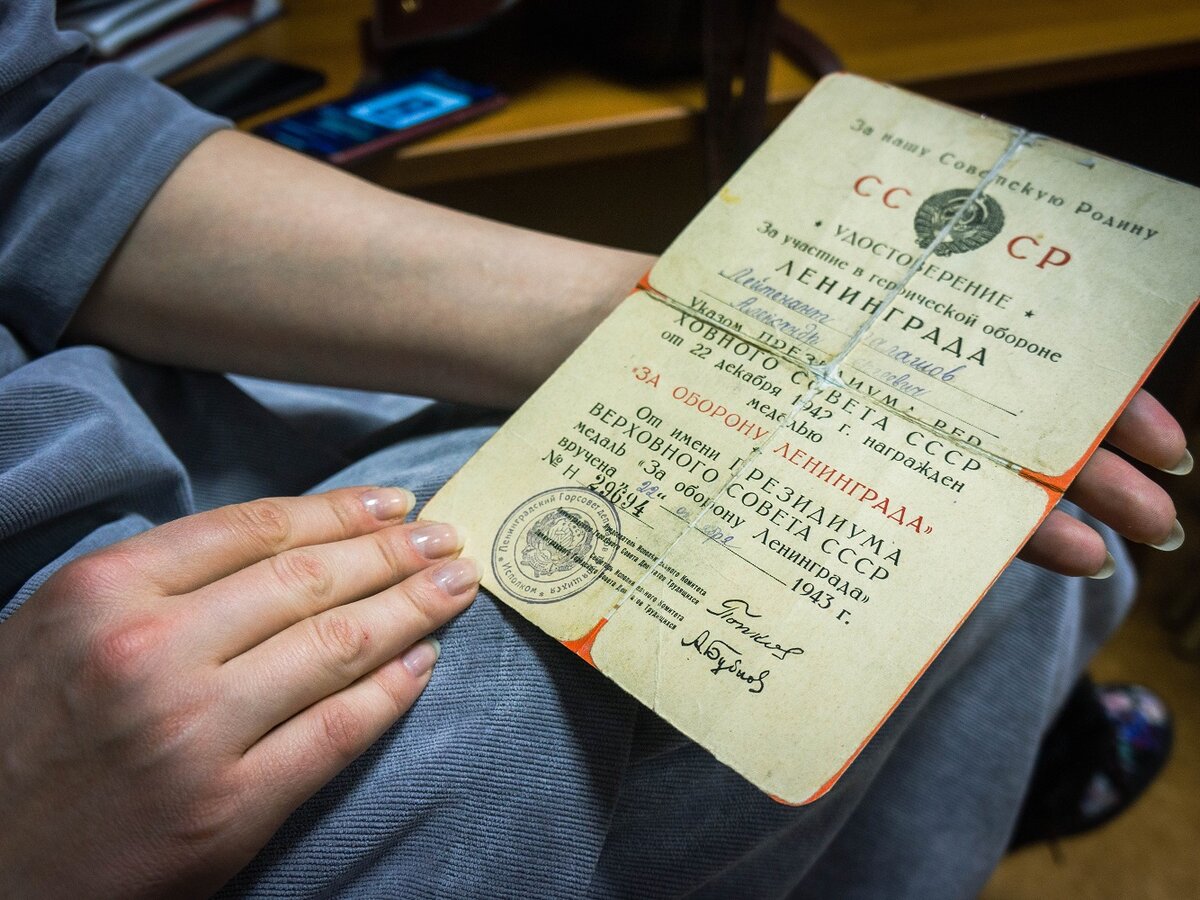 За нашу Советскую Родину
СССР
★ УДОСТОВЕРЕНИЕ ★
За участие в героической обороне
ЛЕНИНГРАДА
Лейтенант
Александр
Указом ПРЕЗИДИУМА ВЕР-
ХОВНОГО СОВЕТА СССР
от 22 декабря 1942 г. награжден
медалью
"ЗА ОБОРОНУ ЛЕНИНГРАДА"
От имени ПРЕЗИДИУМА
ВЕРХОВНОГО СОВЕТА СССР
медаль "За оборону Ленинграда"
вручена "22" 1943 г.
№ Н 29694
Ленинградский Горсовет
Исполком
Попков
А Бубнов